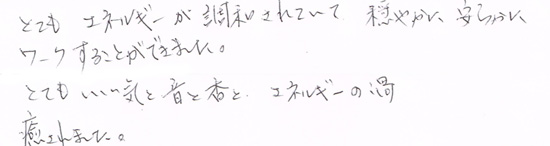 とても エネルギーが調和されていて 穏やかに 安らかに
ワークすることができました。
とてもいい気と音と香と、エネルギーの渦
癒されました。